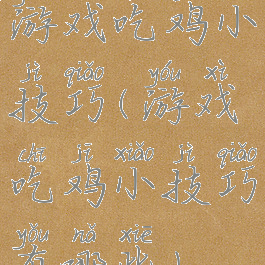 游戏吃鸡小
jì qiǎo yóu xì
技巧(游戏
chī jī xiǎo jì qiǎo
吃鸡小技巧
yǒu nǎ xiē
有哪些)